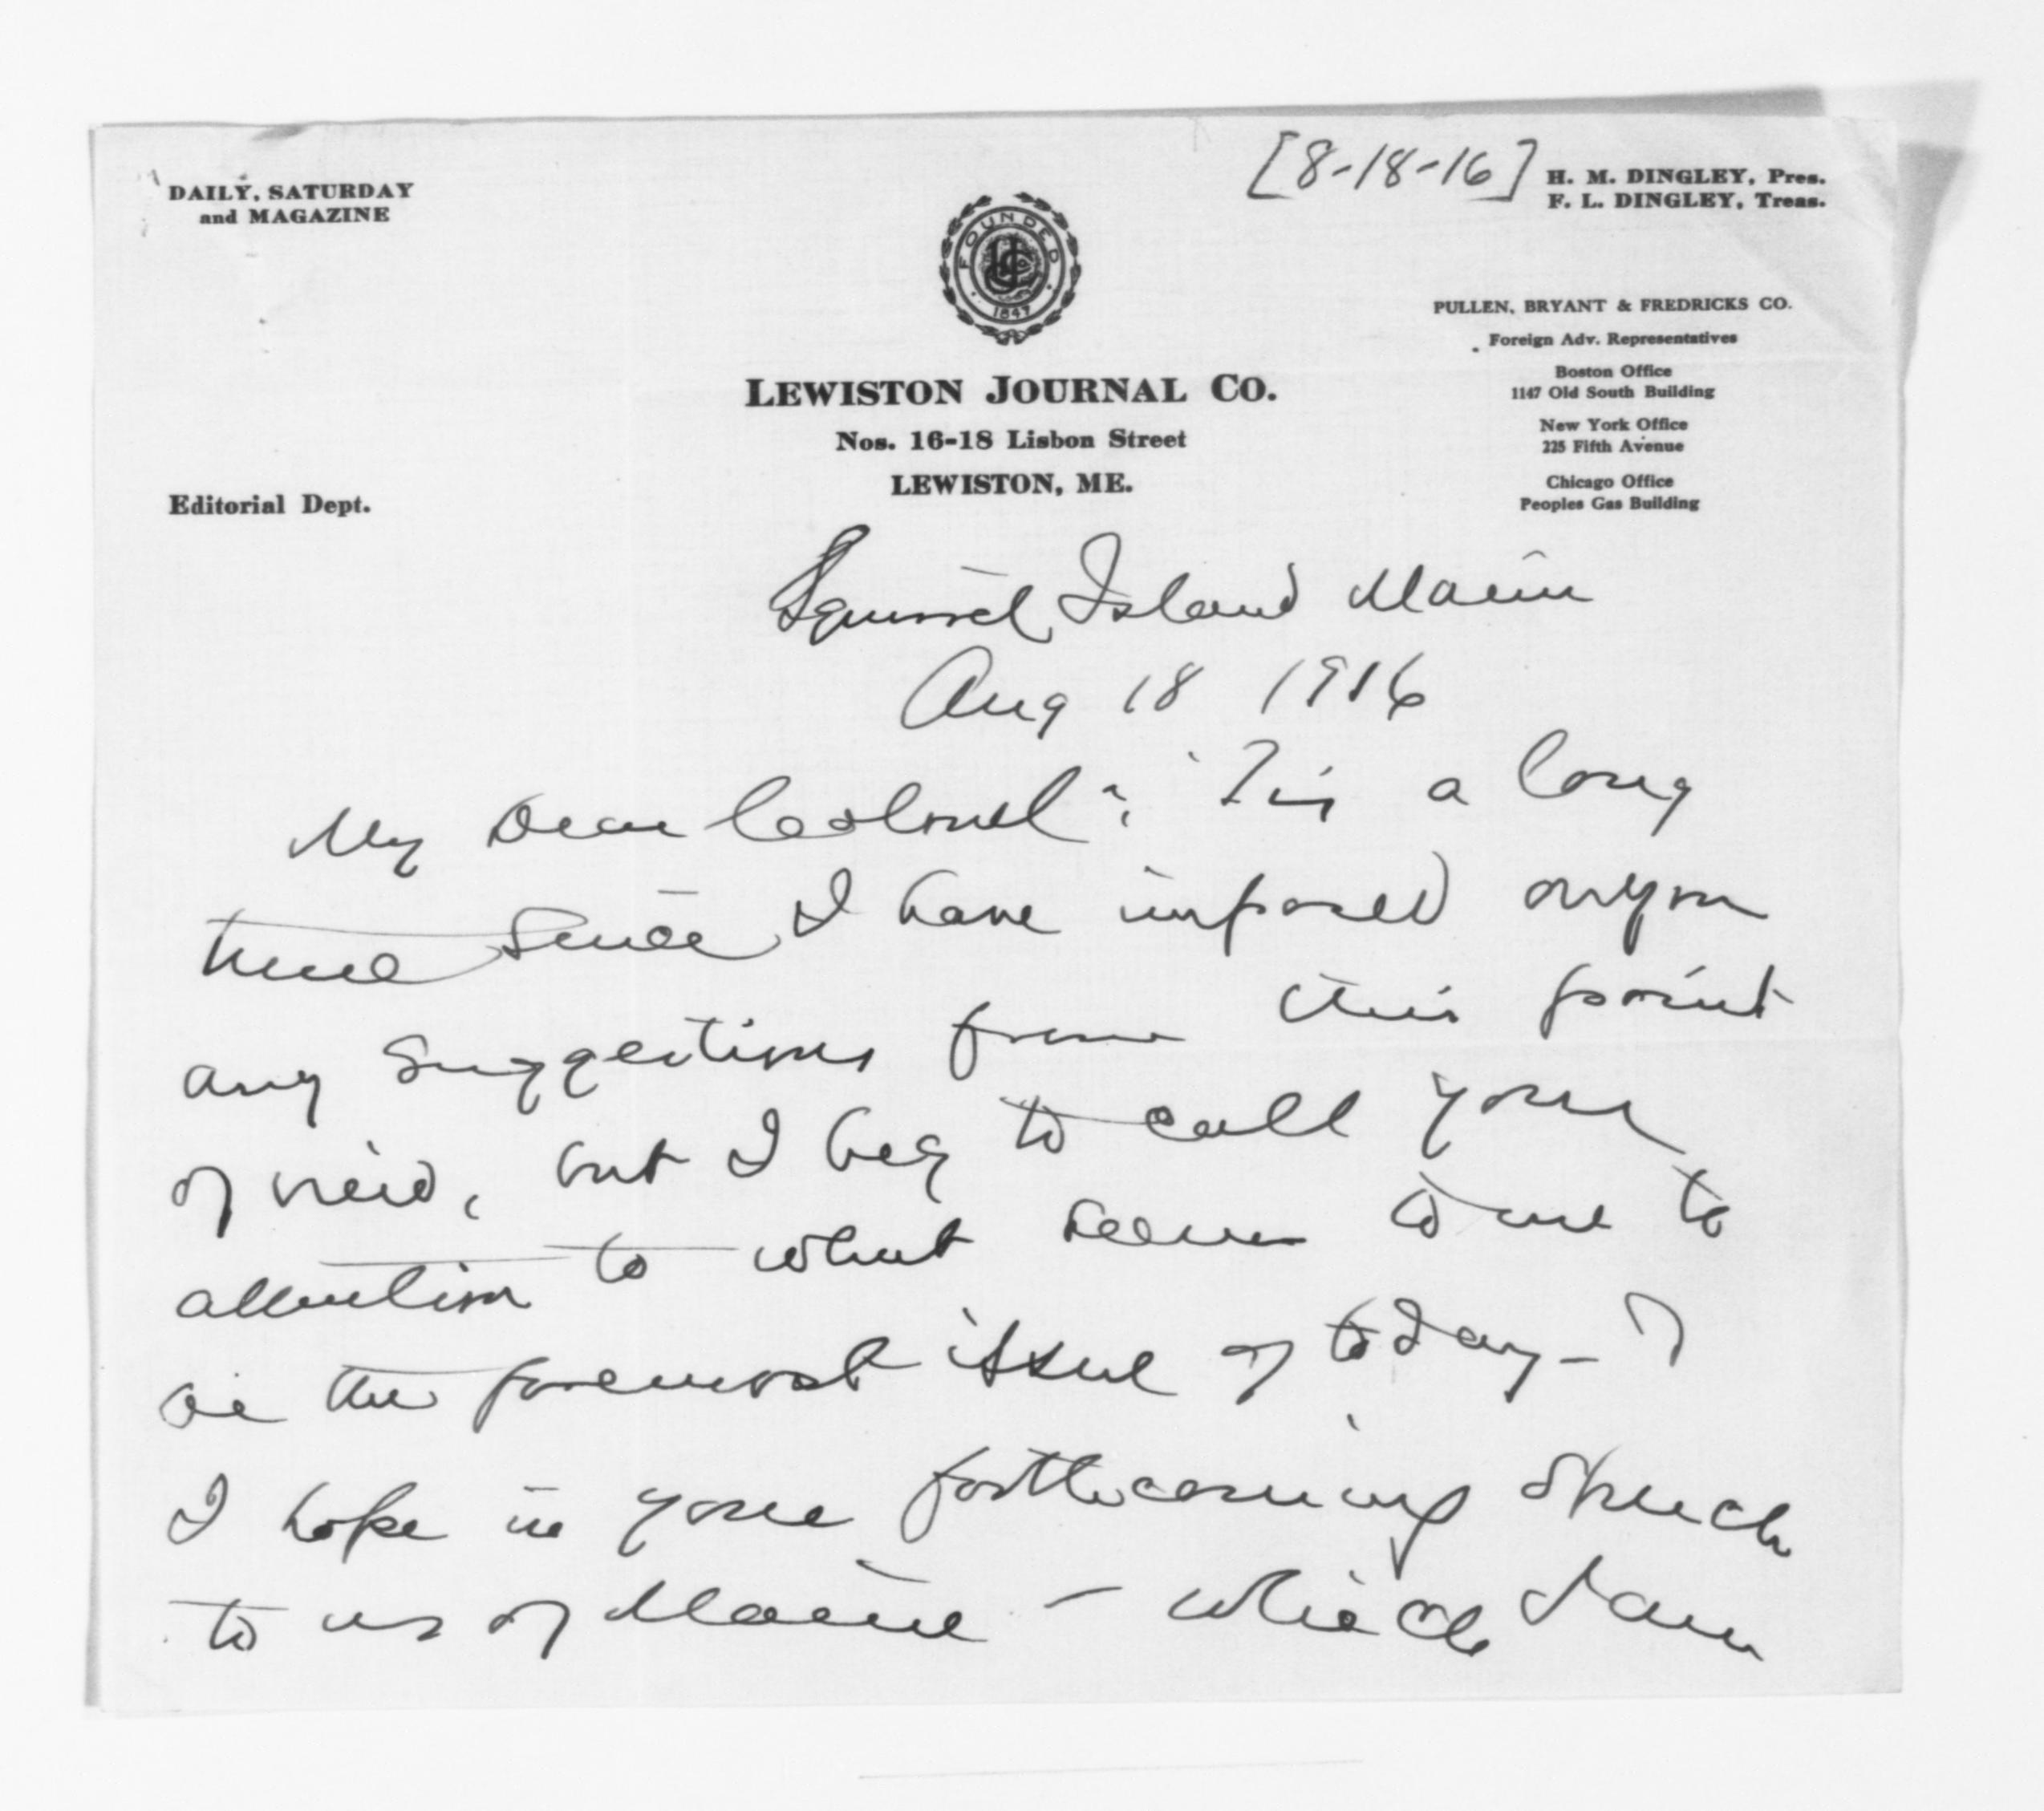 [8-18-16]
DAILY, SATURDAY
and MAGAZINE
H. M. DINGLEY, Pres.
F. L. DINGLEY, Treas.
FOUNDED
LJCo
1847
PULLEN, BRYANT & FREDRICKS CO.
Foreign Adv. Representatives
Boston Office
1147 Old South Building
New York Office
225 Fifth Avenue
Chicago Office
Peoples Gas Building
LEWISTON JOURNAL CO.
Nos. 16-18 Lisbon Street
LEWISTON, ME.
Editorial Dept.
Squirrel Island Maine
Aug 18 1916
My Dear Colonel: 'Tis a long
time since I have imposed on you
any suggestions from this point
of view, but I beg to call your
attention to what seems to me to
be the foremost issue of today—
I hope in your forthcoming speech
to us of Maine — which I am